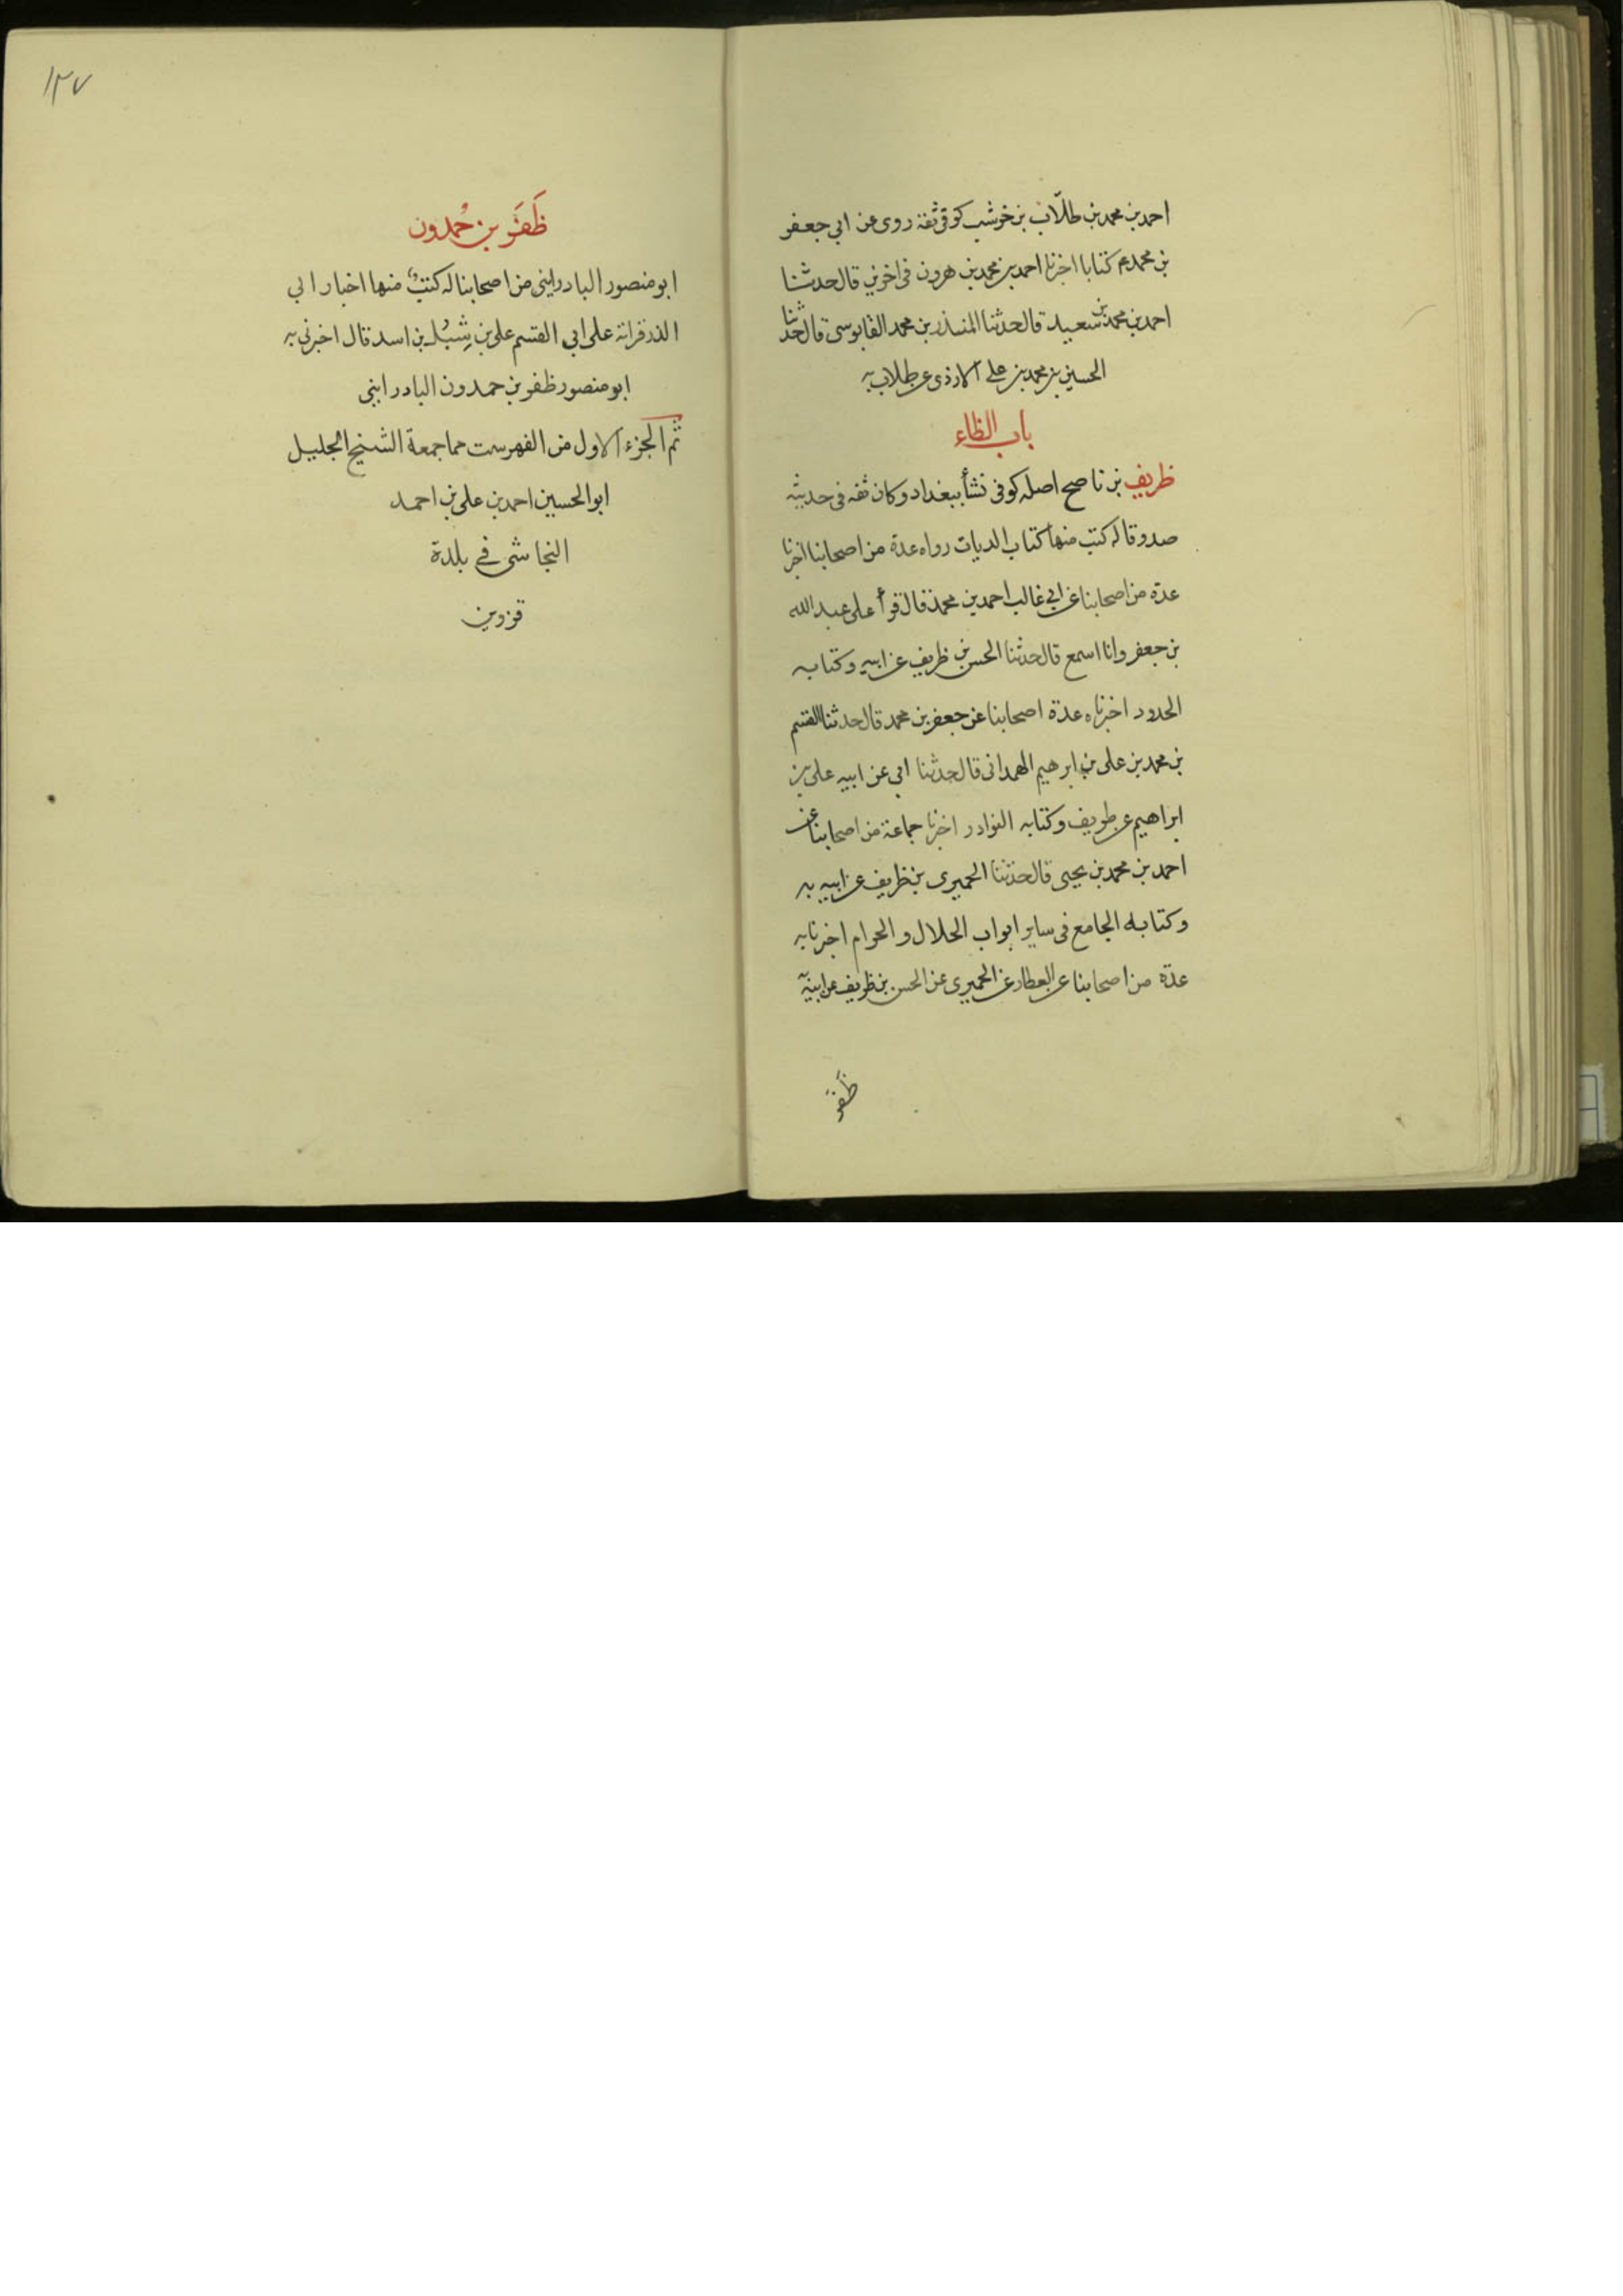 احمد بن محمد بن طلّاب بن خوشب كوفي ثقة روى عن ابي جعفر
بن محمد ع كتابا اخبرنا احمد بن محمد بن هرون في اخرين قال حدثنا
احمد بن محمد بن سعيد قال حدثنا المنذر بن محمد القابوسي قال حدثنا
الحسين بن محمد بن علي الازدي عن طلاب به
باب الظاء
ظريف بن ناصح اصله كوفي نشأ ببغداد وكان ثقه في حديثه
صدوقا له كتب منها كتاب الديات رواه عدة من اصحابنا اخبرنا
عدة من اصحابنا عن ابي غالب احمد بن محمد قال قرأ على عبد الله
بن جعفر وانا اسمع قال حدثنا الحسن بن ظريف عن ابيه وكتابه
الحدود اخبرناه عدة اصحابنا عن جعفر بن محمد قال حدثنا القسم
بن محمد بن علي بن ابرهيم الهمداني قال حدثنا ابي عن ابيه علي بن
ابراهيم عن طريف وكتابه النوادر اخبرنا جماعة من اصحابنا عن
احمد بن محمد بن يحيى قال حدثنا الحميري بن ظريف عن ابيه به
وكتابه الجامع في ساير ابواب الحلال والحرام اخبرنا به
عدة من اصحابنا عن العطار عن الحميري عن الحسن بن ظريف عن ابيه
ظَفَر
١٣٧
ظَفَر بن حُمدون
ابو منصور البادرايني من اصحابنا له كتب منها اخبار ابي
الذر قراته على ابي القسم علي بن شِبُل بن اسد قال اخبرني به
ابو منصور ظفر بن حمدون البادرايني
تم الجزء الاول من الفهرست مما جمعة الشيخ الجليل
ابو الحسين احمد بن علي بن احمد
النجاشي في بلدة
قزوين